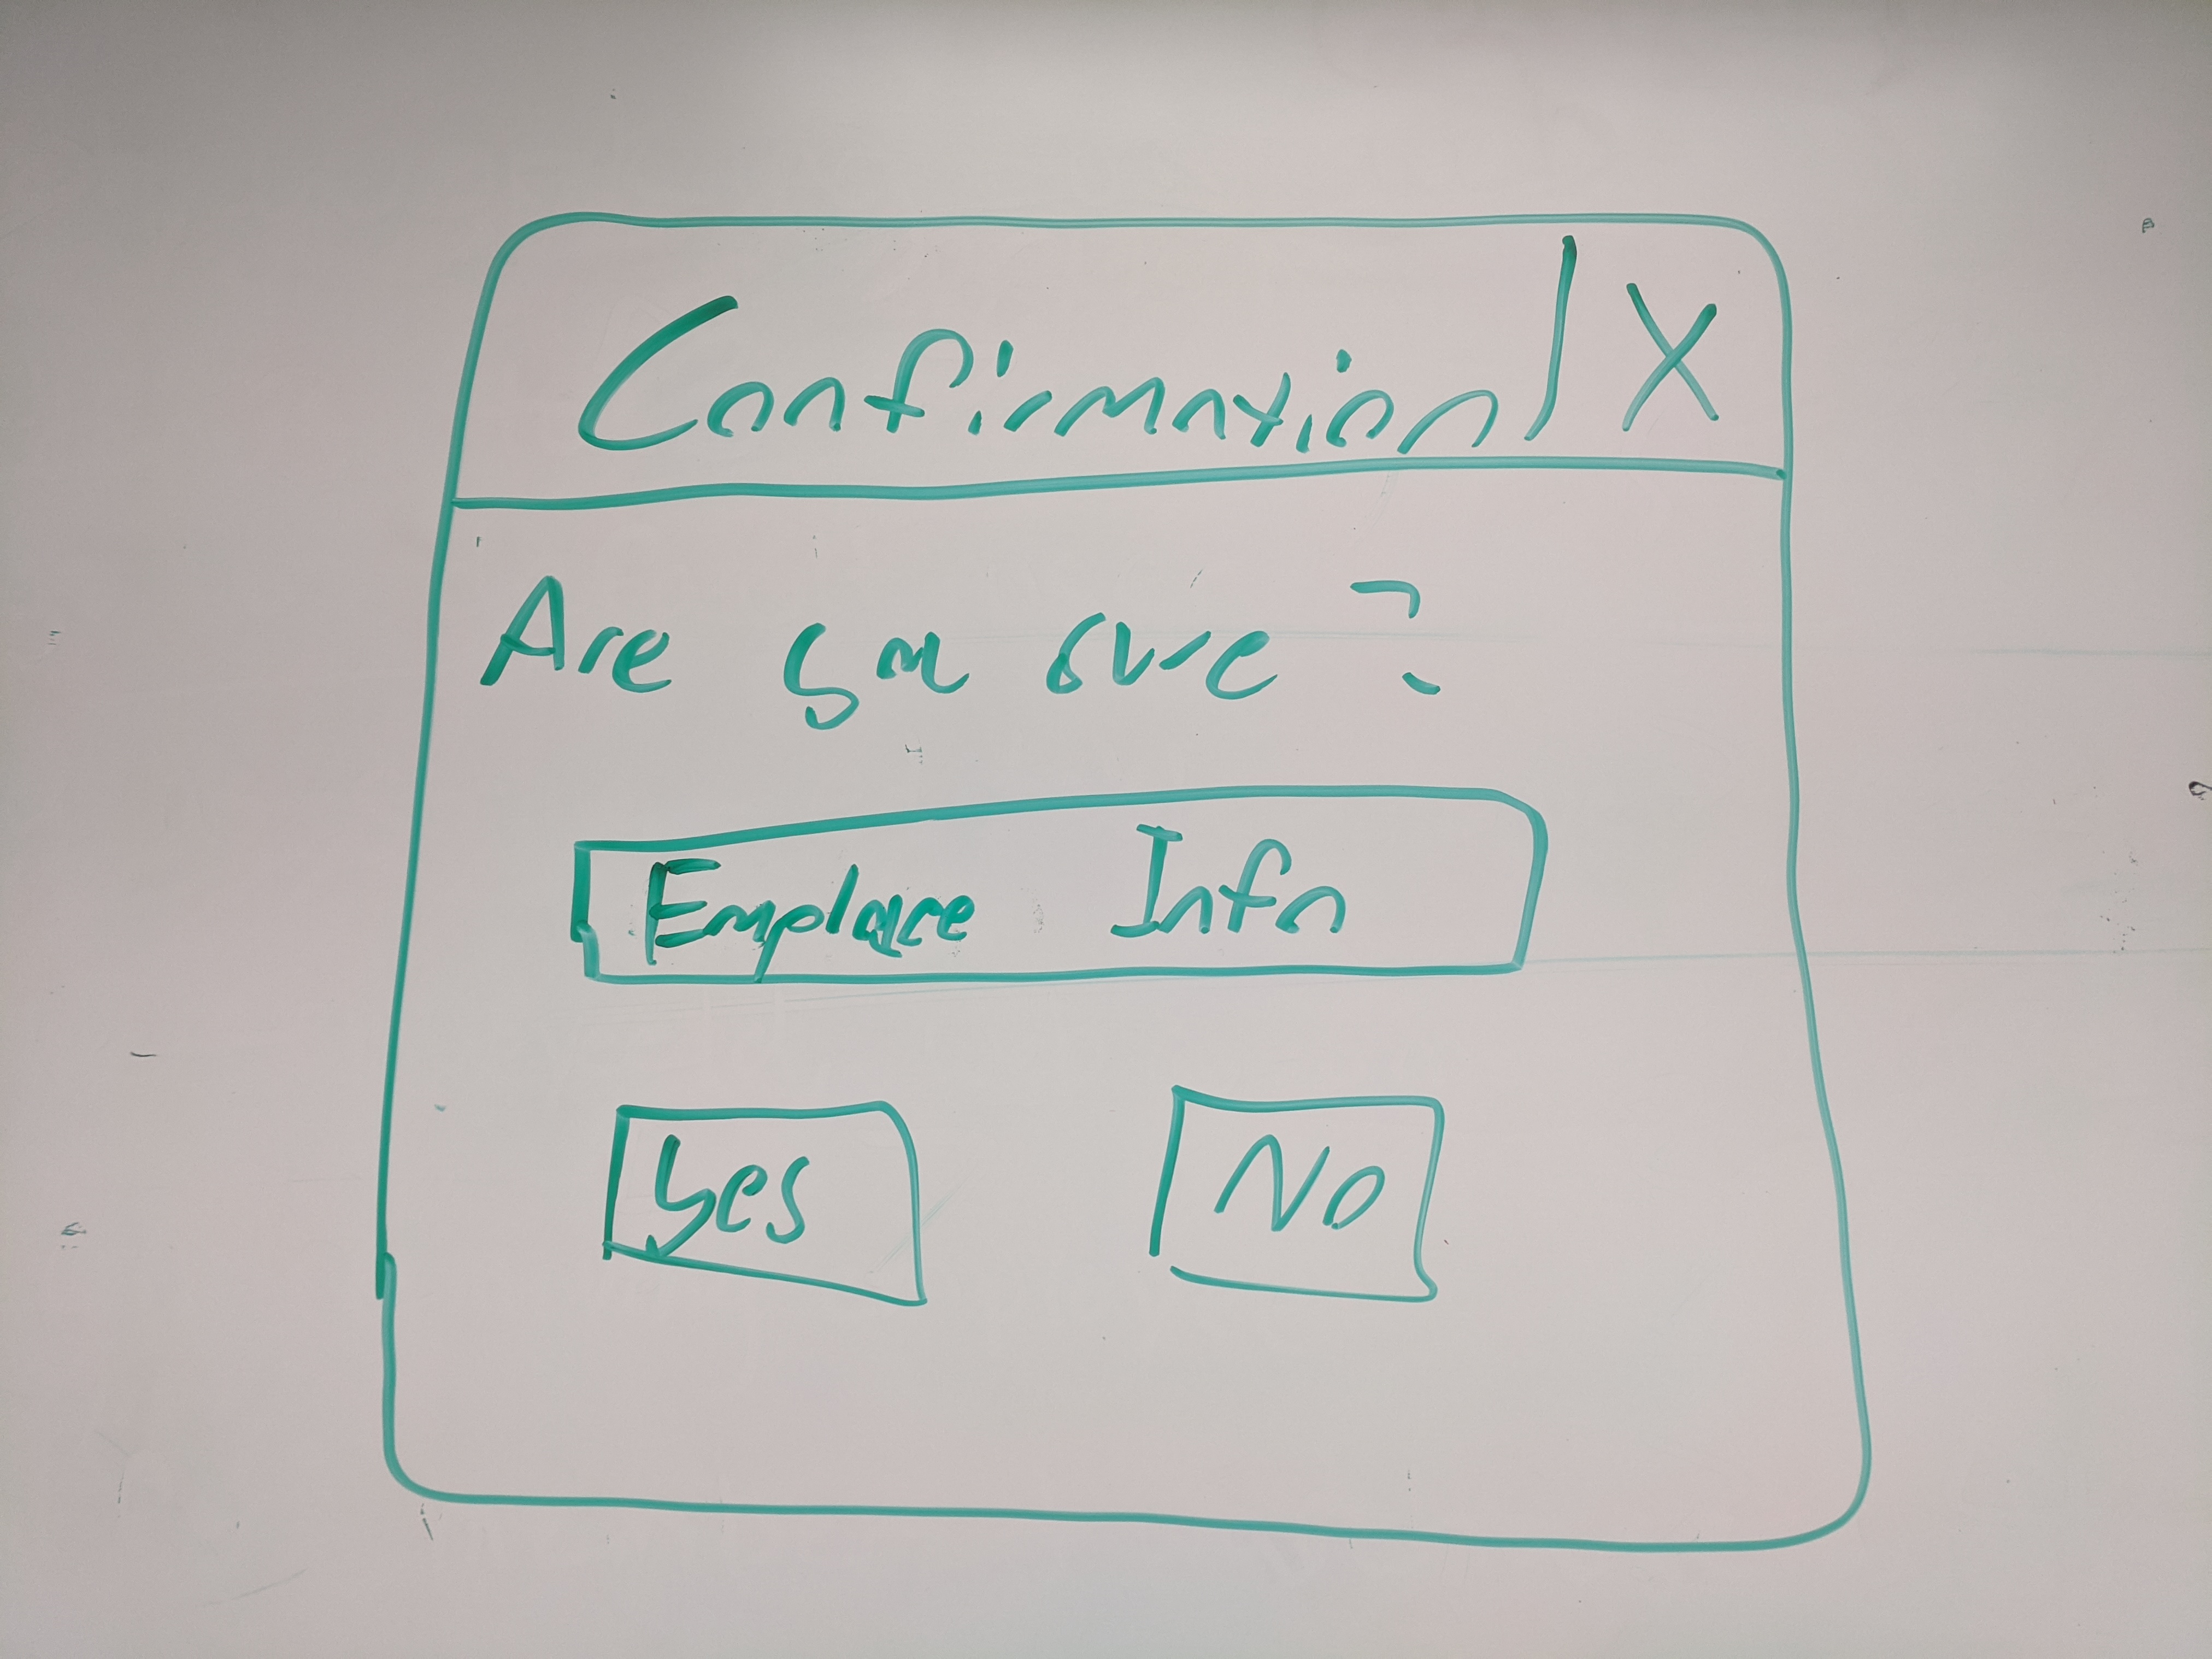 Confirmation X
Are you sure?
Employee Info
Yes No